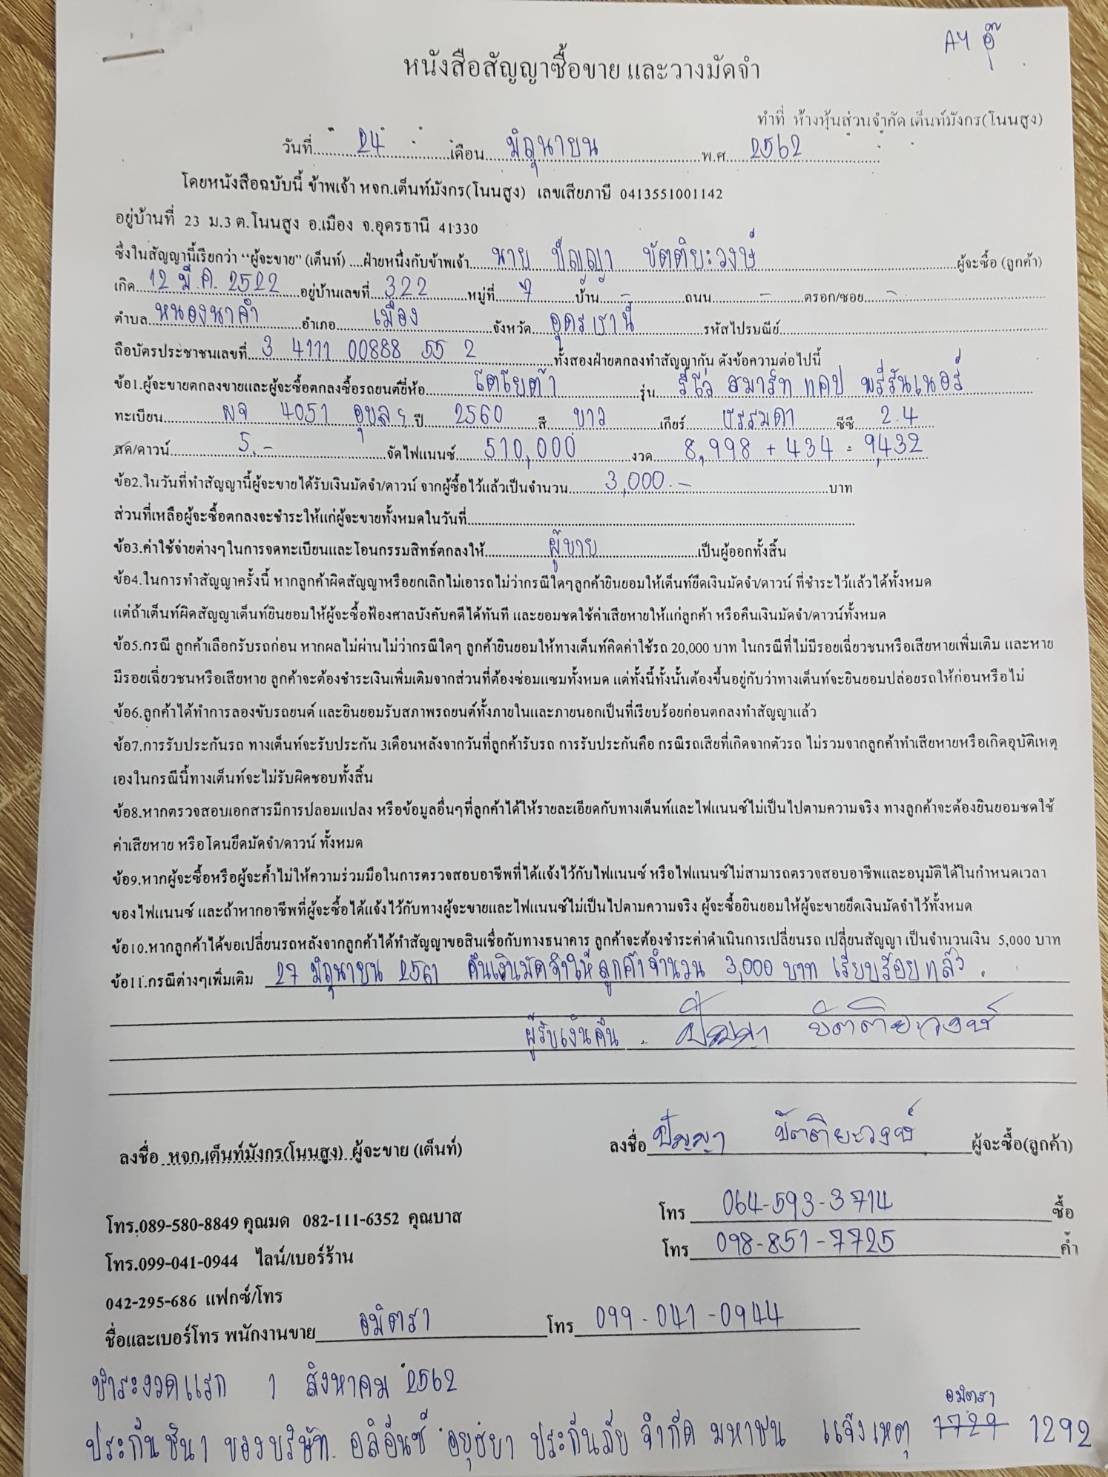 AY อุ๊
หนังสือสัญญาซื้อขาย และวางมัดจำ
ทำที่ ห้างหุ้นส่วนจำกัด เต็นท์มังกร(โนนสูง)
วันที่ 24 เดือน มิถุนายน พ.ศ 2562
โดยหนังสือฉบับนี้ ข้าพเจ้า หจก.เต็นท์มังกร(โนนสูง) เลขเสียภาษี 0413551001142
อยู่บ้านที่ 23 ม.3 ต.โนนสูง อ.เมือง จ.อุดรธานี 41330
ซึ่งในสัญญานี้เรียกว่า "ผู้จะขาย" (เต็นท์) ....ฝ่ายหนึ่งกับข้าพเจ้า นาย ปัญญา ขัตติยะวงษ์ ผู้จะซื้อ (ลูกค้า)
เกิด 12 มี.ค. 2522 อยู่บ้านเลขที่ 322 หมู่ที่ 7 บ้าน - ถนน - ตรอก/ซอย -
ตำบล หนองนาคำ อำเภอ เมือง จังหวัด อุดรธานี รหัสไปรษณีย์
ถือบัตรประชาชนเลขที่ 3 4111 00888 55 2 ทั้งสองฝ่ายตกลงทำสัญญากัน ดังข้อความต่อไปนี้
ข้อ1.ผู้จะขายตกลงขายและผู้จะซื้อตกลงซื้อรถยนต์ยี่ห้อ โตโยต้า รุ่น รีโว่ สมาร์ท แคป พรีรันเนอร์
ทะเบียน ผจ 4051 อุบลฯ ปี 2560 สี ขาว เกียร์ ธรรมดา ซีซี 2.4
สด/ดาวน์ 5.- จัดไฟแนนซ์ 510,000 งวด 8,998 + 434 = 9,432
ข้อ2.ในวันที่ทำสัญญานี้ผู้จะขายได้รับเงินมัดจำ/ดาวน์ จากผู้ซื้อไว้แล้วเป็นจำนวน 3,000.- บาท
ส่วนที่เหลือผู้จะซื้อตกลงจะชำระให้แก่ผู้จะขายทั้งหมดในวันที่
ข้อ3.ค่าใช้จ่ายต่างๆในการจดทะเบียนและโอนกรรมสิทธ์ตกลงให้ ผู้ขาย เป็นผู้ออกทั้งสิ้น
ข้อ4.ในการทำสัญญาครั้งนี้ หากลูกค้าผิดสัญญาหรือยกเลิกไม่เอารถไม่ว่ากรณีใดๆลูกค้ายินยอมให้เต็นท์ยึดเงินมัดจำ/ดาวน์ ที่ชำระไว้แล้วได้ทั้งหมด
แต่ถ้าเต็นท์ผิดสัญญาเต็นท์ยินยอมให้ผู้จะซื้อฟ้องศาลบังคับคดีได้ทันที และยอมชดใช้ค่าเสียหายให้แก่ลูกค้า หรือคืนเงินมัดจำ/ดาวน์ทั้งหมด
ข้อ5.กรณี ลูกค้าเลือกรับรถก่อน หากผลไม่ผ่านไม่ว่ากรณีใดๆ ลูกค้ายินยอมให้ทางเต็นท์คิดค่าใช้รถ 20,000 บาท ในกรณีที่ไม่มีรอยเฉี่ยวชนหรือเสียหายเพิ่มเติม และหาย
มีรอยเฉี่ยวชนหรือเสียหาย ลูกค้าจะต้องชำระเงินเพิ่มเติมจากส่วนที่ต้องซ่อมแซมทั้งหมด แต่ทั้งนี้ทั้งนั้นต้องขึ้นอยู่กับว่าทางเต็นท์จะยินยอมปล่อยรถให้ก่อนหรือไม่
ข้อ6.ลูกค้าได้ทำการลองขับรถยนต์ และยินยอมรับสภาพรถยนต์ทั้งภายในและภายนอกเป็นที่เรียบร้อยก่อนตกลงทำสัญญาแล้ว
ข้อ7.การรับประกันรถ ทางเต็นท์จะรับประกัน 3เดือนหลังจากวันที่ลูกค้ารับรถ การรับประกันคือ กรณีรถเสียที่เกิดจากตัวรถ ไม่รวมจากลูกค้าทำเสียหายหรือเกิดอุบัติเหตุ
เองในกรณีนี้ทางเต็นท์จะไม่รับผิดชอบทั้งสิ้น
ข้อ8.หากตรวจสอบเอกสารมีการปลอมแปลง หรือข้อมูลอื่นๆที่ลูกค้าได้ให้รายละเอียดกับทางเต็นท์และไฟแนนซ์ไม่เป็นไปตามความจริง ทางลูกค้าจะต้องยินยอมชดใช้
ค่าเสียหาย หรือโดนยึดมัดจำ/ดาวน์ ทั้งหมด
ข้อ9.หากผู้จะซื้อหรือผู้จะค้ำไม่ให้ความร่วมมือในการตรวจสอบอาชีพที่ได้แจ้งไว้กับไฟแนนซ์ หรือไฟแนนซ์ไม่สามารถตรวจสอบอาชีพและอนุมัติได้ในกำหนดเวลา
ของไฟแนนซ์ และถ้าหากอาชีพที่ผู้จะซื้อได้แจ้งไว้กับทางผู้จะขายและไฟแนนซ์ไม่เป็นไปตามความจริง ผู้จะซื้อยินยอมให้ผู้จะขายยึดเงินมัดจำไว้ทั้งหมด
ข้อ10.หากลูกค้าได้ขอเปลี่ยนรถหลังจากลูกค้าได้ทำสัญญาขอสินเชื่อกับทางธนาคาร ลูกค้าจะต้องชำระค่าดำเนินการเปลี่ยนรถ เปลี่ยนสัญญา เป็นจำนวนเงิน 5,000 บาท
ข้อ11.กรณีต่างๆเพิ่มเติม 27 มิถุนายน 2561 คืนเงินมัดจำให้ลูกค้าจำนวน 3,000 บาท เรียบร้อยแล้ว.
ผู้รับเงินคืน . ปัญญา ขัตติยะวงษ์
ลงชื่อ หจก.เต็นท์มังกร(โนนสูง) ผู้จะขาย (เต็นท์) ลงชื่อ ปัญญา ขัตติยะวงษ์ ผู้จะซื้อ(ลูกค้า)
โทร.089-580-8849 คุณมด 082-111-6352 คุณบาส โทร 064-593-3714 ซื้อ
โทร.099-041-0944 ไลน์/เบอร์ร้าน โทร 098-851-7725 ค้ำ
042-295-686 แฟกซ์/โทร
ชื่อและเบอร์โทร พนักงานขาย อมิตรา โทร 099-041-0944
ชำระงวดแรก 1 สิงหาคม 2562
อมิตรา
ประกันชั้น 1 ของบริษัท. อลิอันซ์ อยุธยา ประกันภัย จำกัด มหาชน แจ้งเหตุ 1292